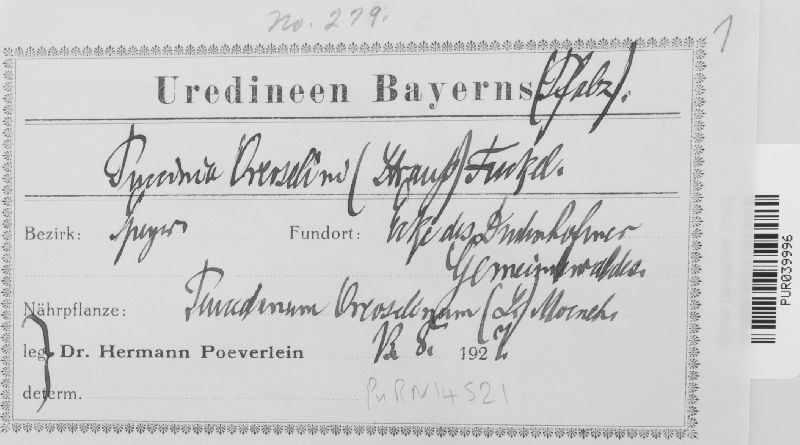 No. 279.
1
Uredineen Bayerns (Pfalz).
Puccinia Oreoselini (Strauß) Fuckel.
Bezirk: Speyer Fundort: des Dudenhofener
Gemeindewaldes.
Nährpflanze: Peucedanum Oreoselinum (L.) Moench.
leg. Dr. Hermann Poeverlein 8. 192
determ.
PURN14521
PUR039996